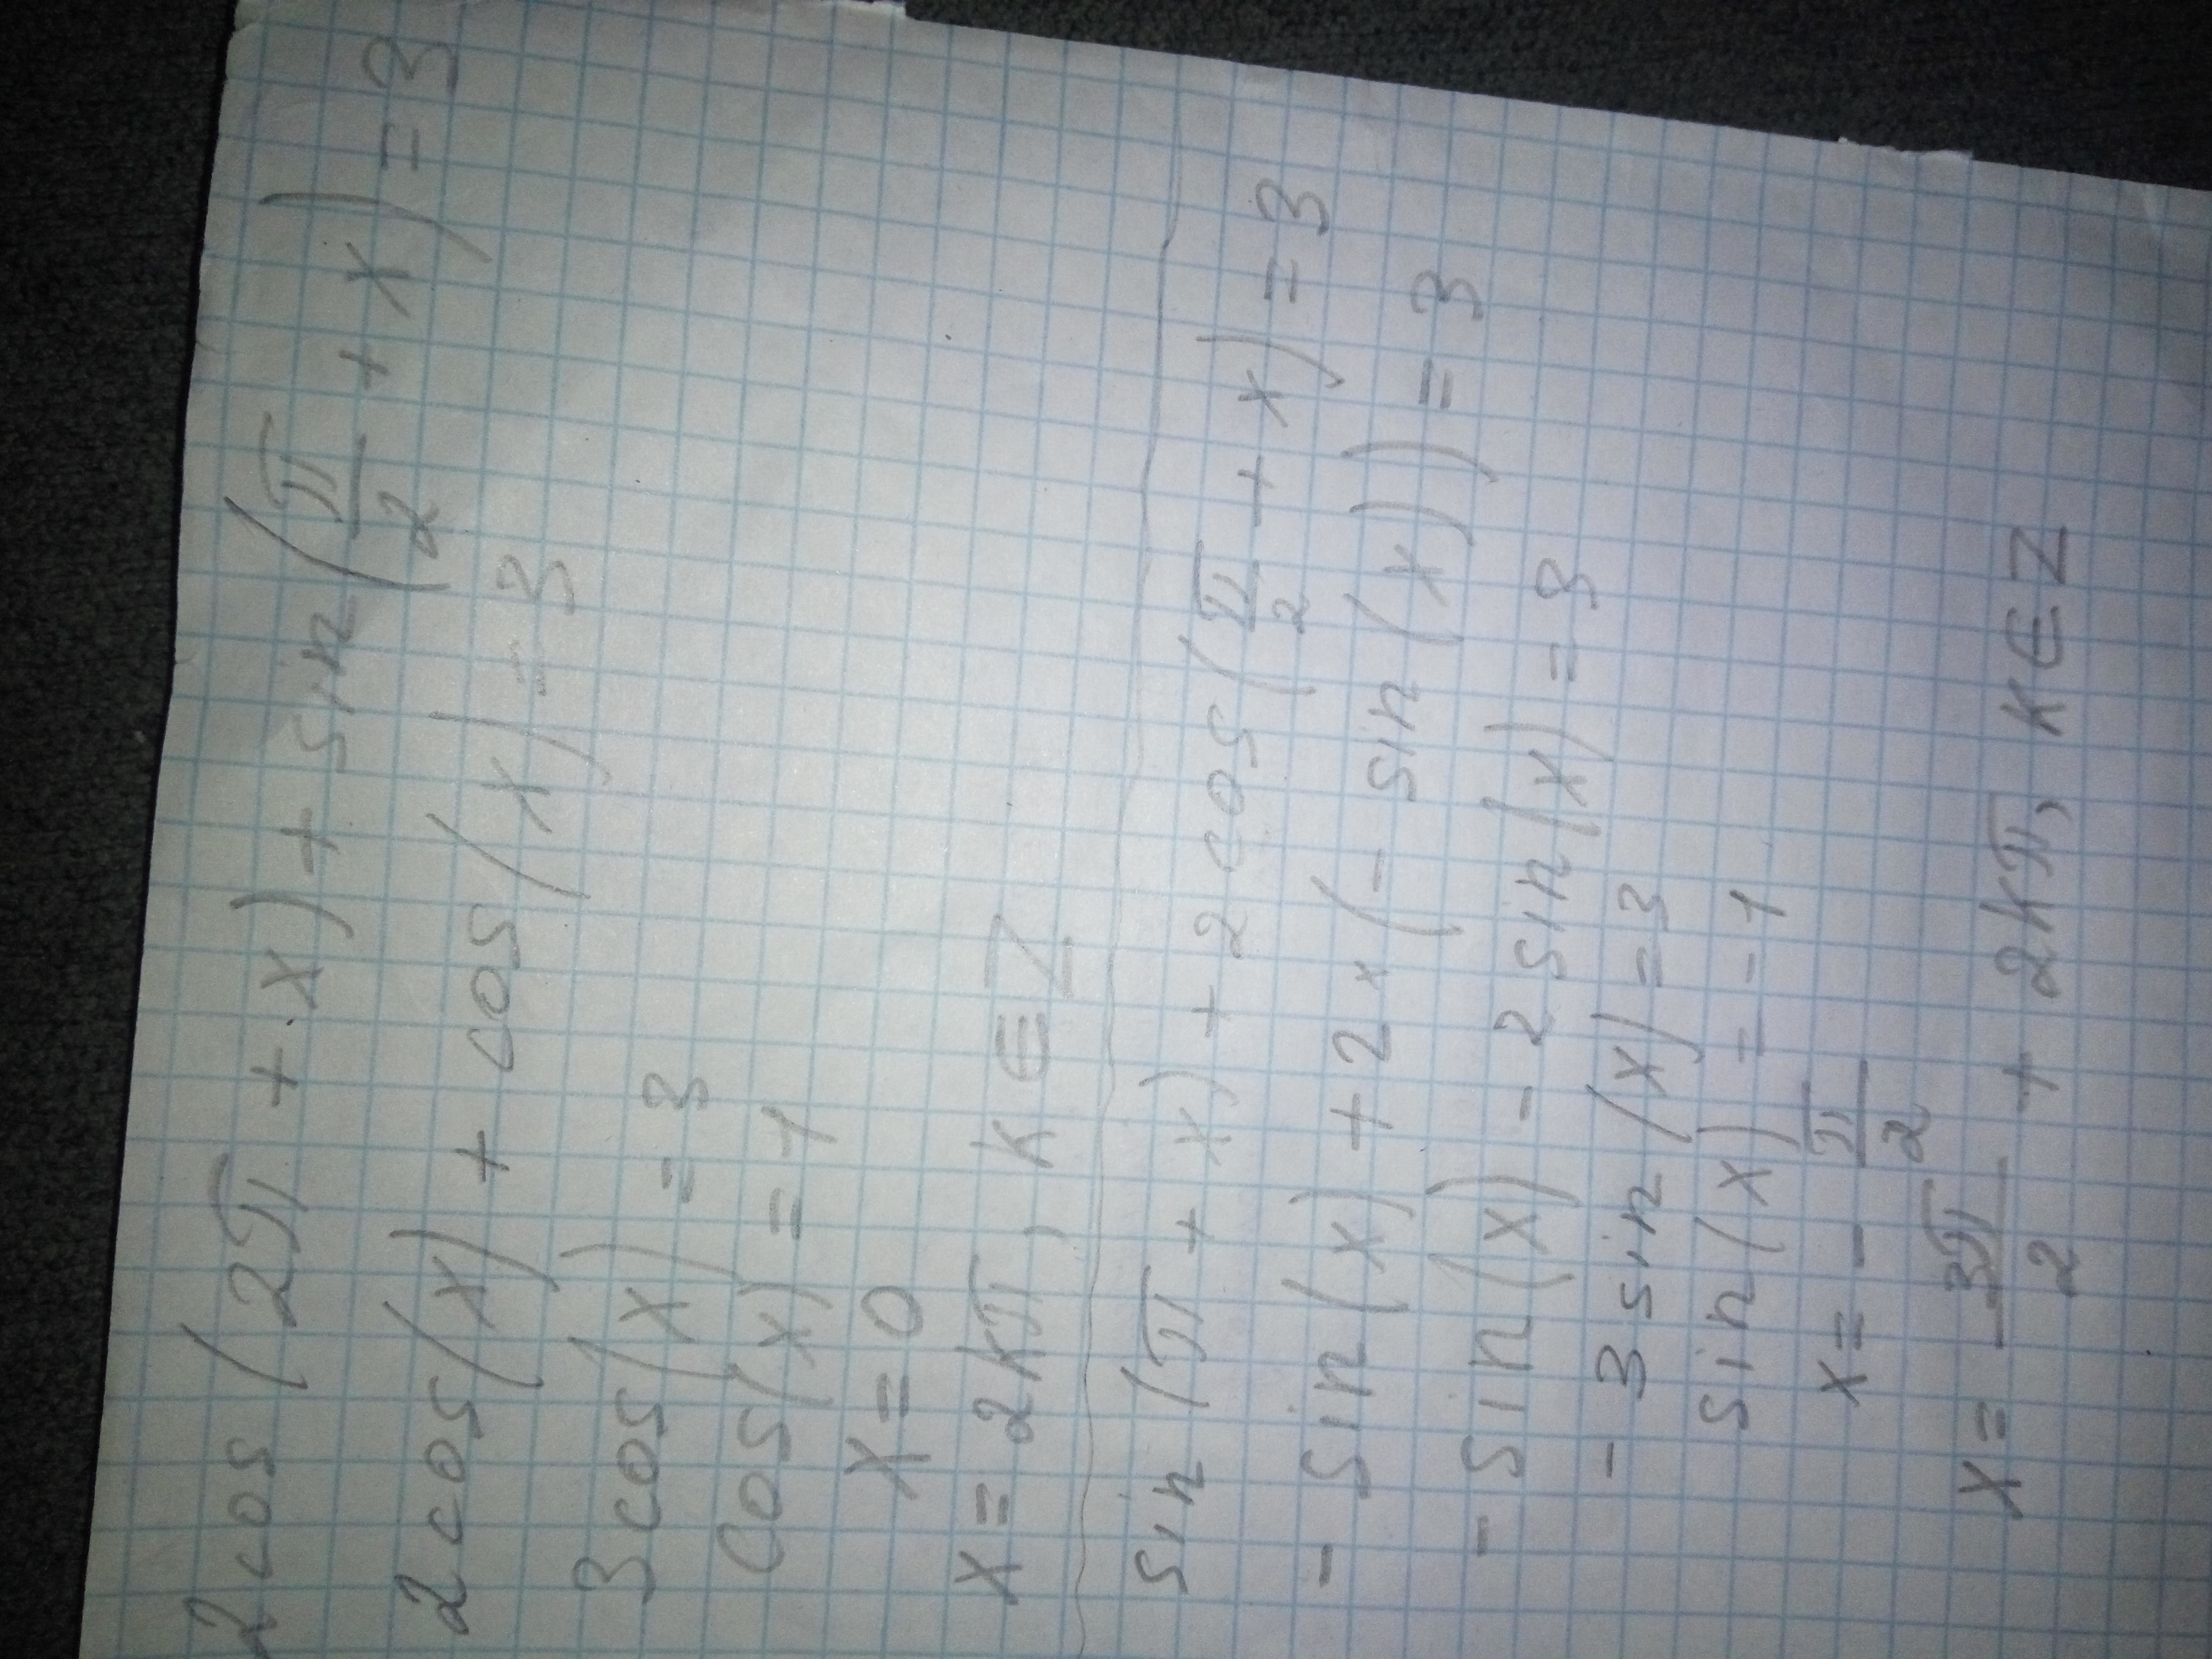 2cos(2π + x) + sin(π/2 + x) = 3
2cos(x) + cos(x) = 3
3cos(x) = 3
cos(x) = 1
x = 0
x = 2kπ, k ∈ Z
sin(π + x) + 2cos(π/2 + x) = 3
- sin(x) + 2 × (- sin(x)) = 3
- sin(x) - 2sin(x) = 3
- 3sin(x) = 3
sin(x) = -1
x = - π/2
x = 3π/2 + 2kπ, k ∈ Z